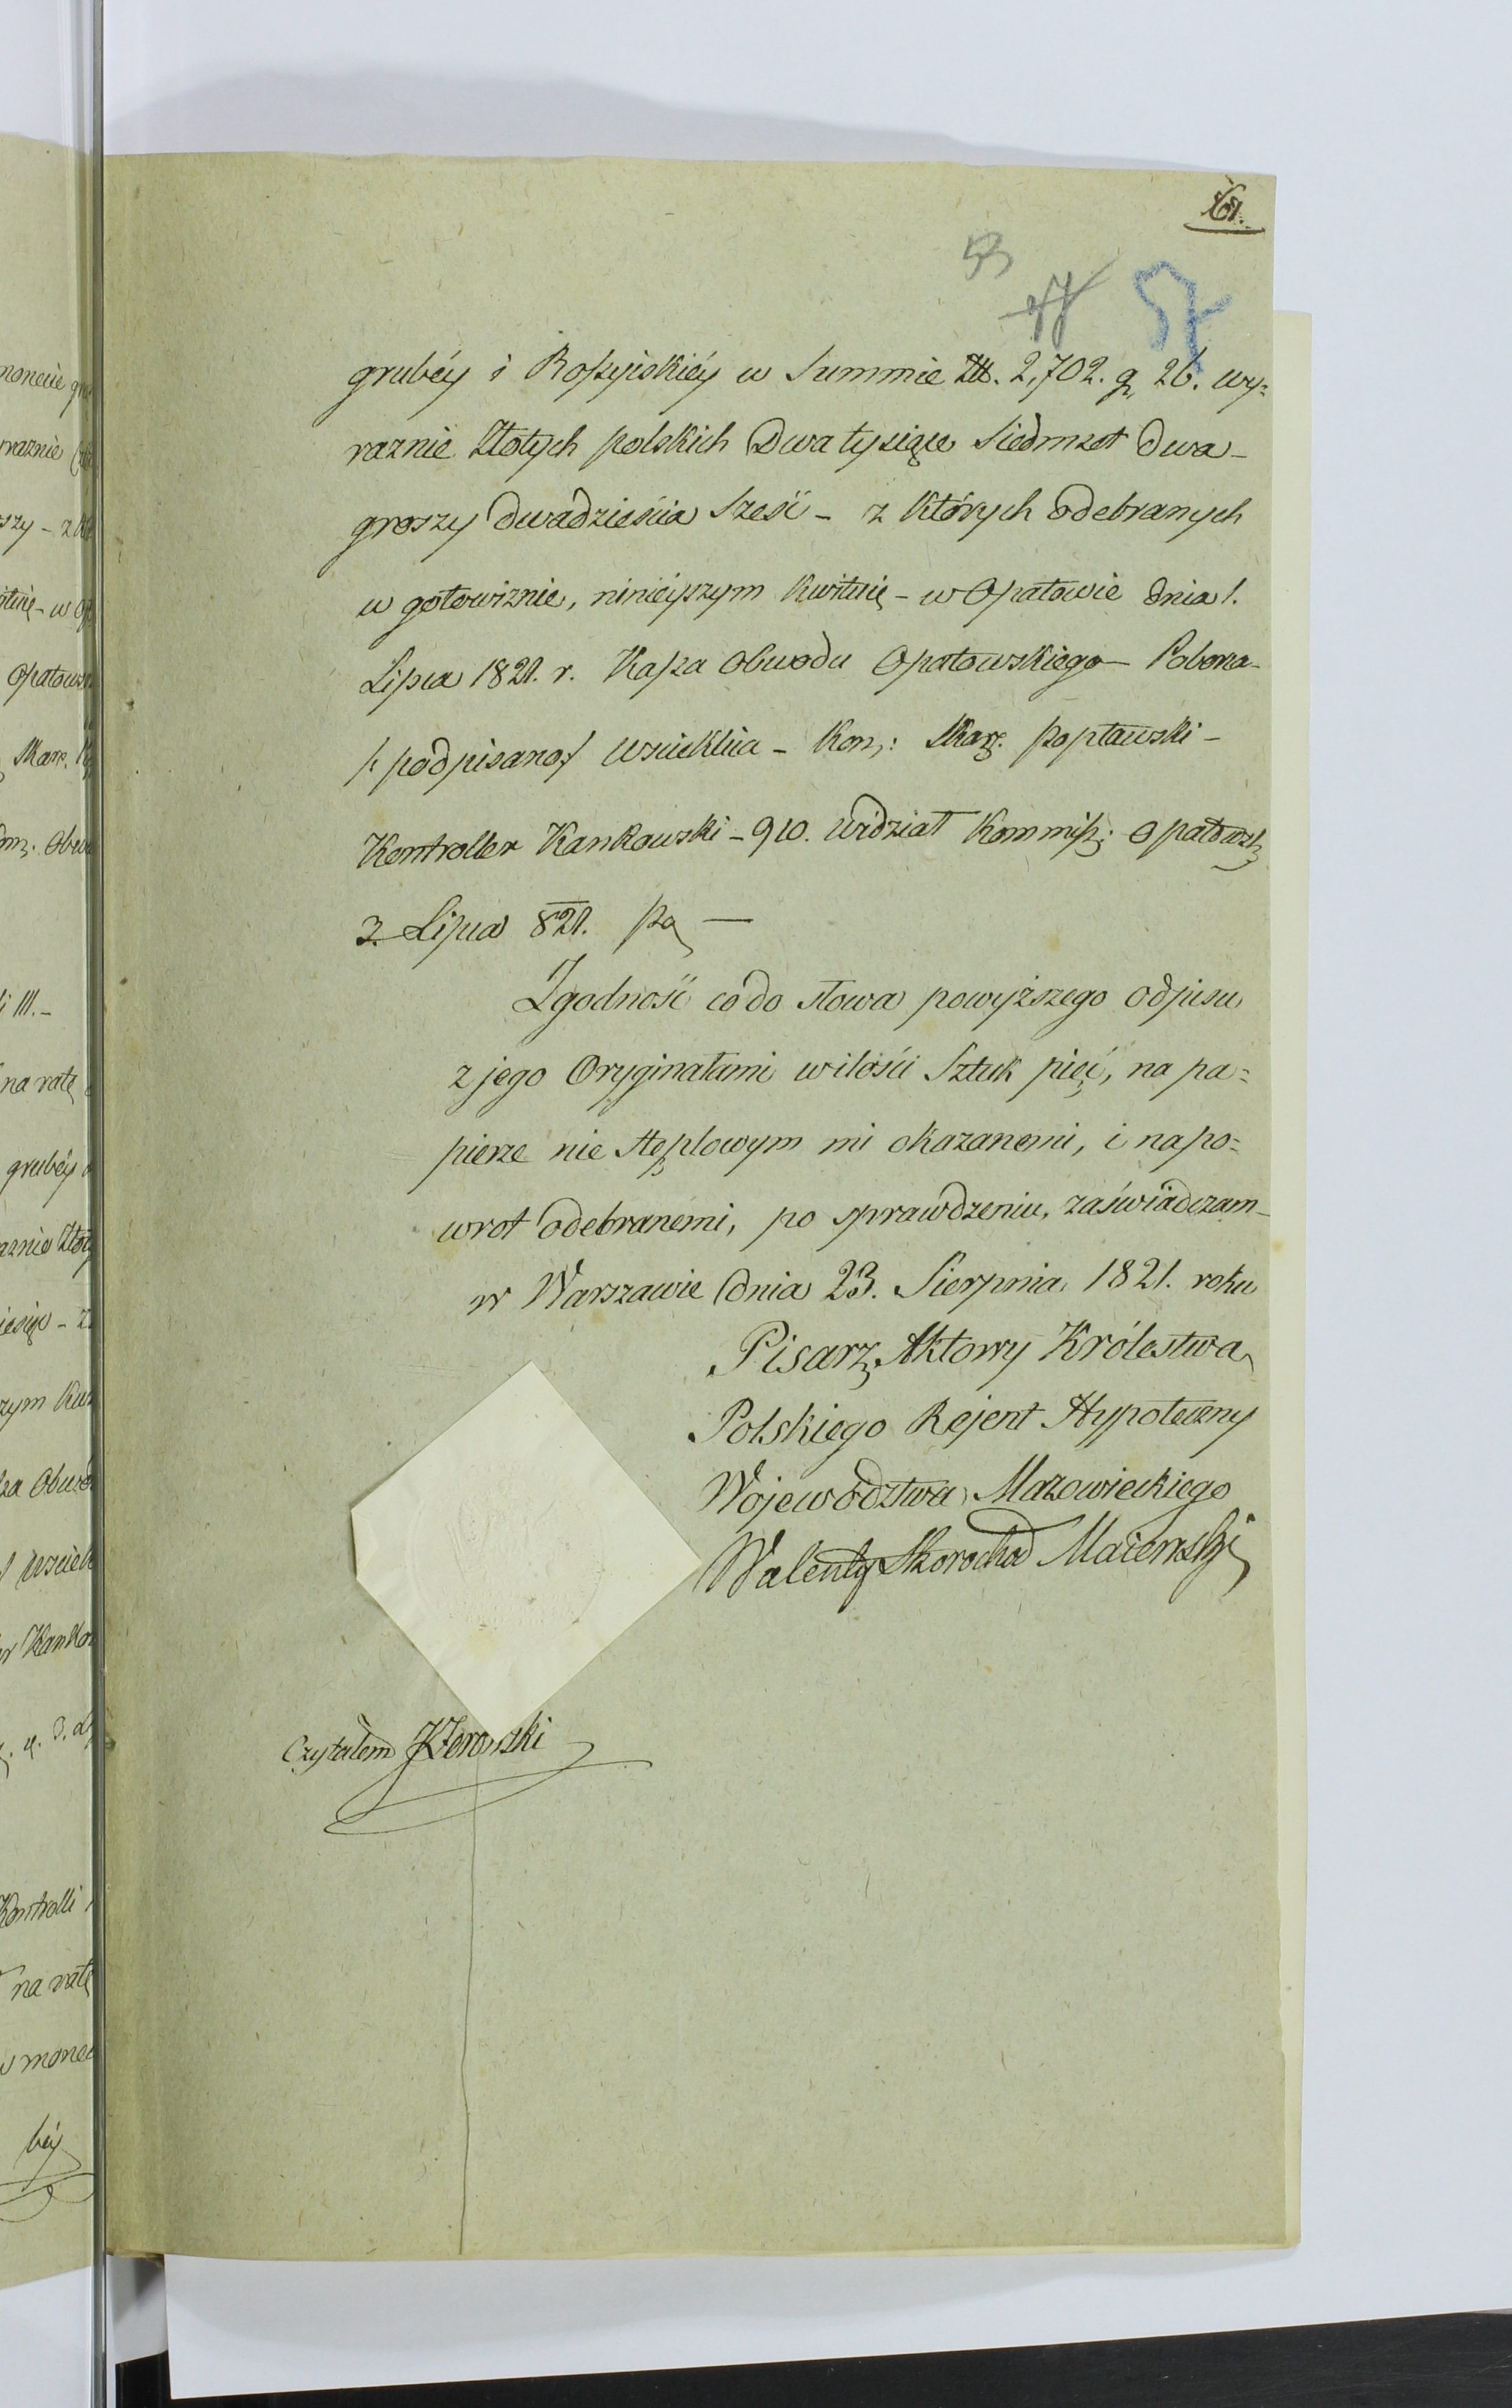 61.
53
57
grubéy i Rossyiskiéy w Summie Złł. 2,702. gr 26. wy=
raznie Złotych polskich Dwa tysiące Siedmset dwa-
groszy dwadzieścia Sześć - z których odebranych
w gotowiznie, ninieyszym kwituię - w Opatowie dnia 1.
Lipca 1821. r. Kassa Obwodu Opatowskiego - Poborca-
/: podpisano :/ Wscieklica - Kon: Skarg. Popławski -
Kontroller Kankowski - 910. widział Kommiss: Opatowski
3. Lipca 821.
Zgodność co do słowa powyższego odpisu
z jego Oryginałami w ilości Sztuk pięć, na pa=
pierze nie stęplowym mi okazanemi, i na po=
wrot odebranemi, po sprawdzeniu, zaświadczam-
w Warszawie dnia 23. Sierpnia 1821. roku
Pisarz Aktowy Królestwa
Polskiego Rejent Hypoteczny
Województwa Mazowieckiego
Walenty Skorochod Maiewski
Czytałem
monecie
raznie
Opatows
Skarg.
III.-
na ratę
grubéy
raznie Złoty
zym
Obwod
Wsciek
r Kanko
Kontrolli
na ratę
w monec
béy